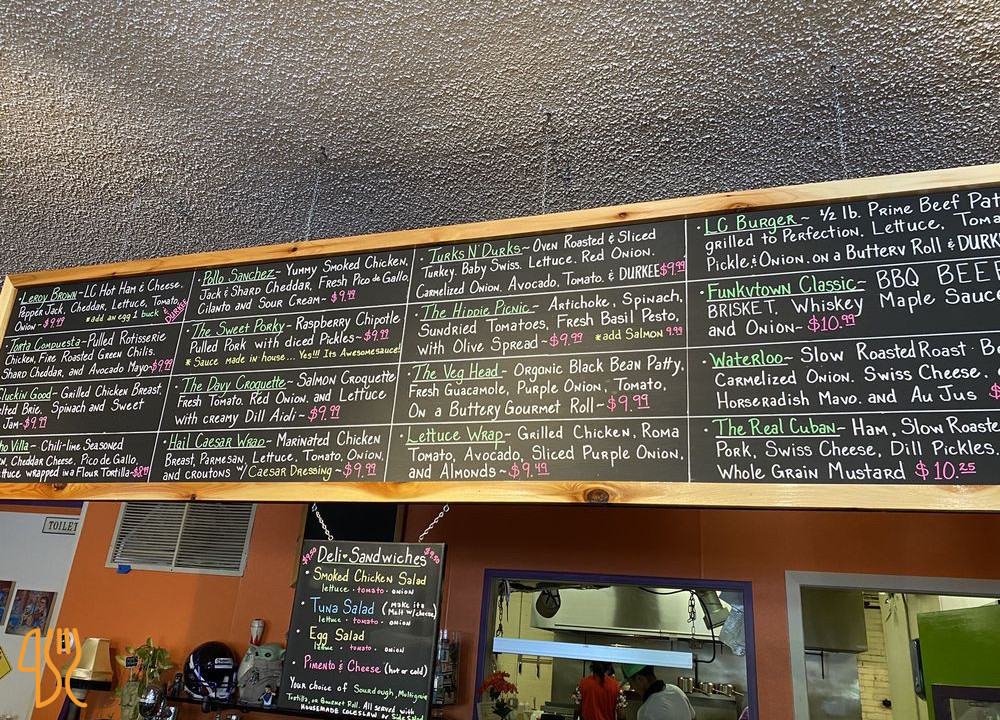 • Leroy Brown~ LC Hot Ham & Cheese.
Pepper Jack, Cheddar, Lettuce, Tomato,
Onion~ $9.49 *add an egg 1 buck & DURKEE
Torta Compuesta~Pulled Rotisserie
Chicken, Fire Roasted Green Chilis.
Sharp Cheddar, and Avocado Mayo~$9.99
Good~ Grilled Chicken Breast,
Brie, Spinach and Sweet
Jam~$9.99
Villa~ Chili-lime Seasoned
Cheddar Cheese, Pico de Gallo,
wrapped in a Flour Tortilla~
• Pollo Sanchez~ Yummy Smoked Chicken,
Jack & Sharp Cheddar, Fresh Pico de Gallo,
Cilanto and Sour Cream~ $9.99
• The Sweet Porky~ Raspberry Chipotle
Pulled Pork with diced Pickles~ $9.99
* Sauce made in house... Yes!!! Its Awesomesauce!
• The Davy Croquette~ Salmon Croquette
Fresh Tomato. Red Onion. and Lettuce
with creamy Dill Aioli~ $9.99
• Hail Caesar Wrap~ Marinated Chicken
Breast, Parmesan, Lettuce, Tomato, Onion,
and croutons w/ Caesar Dressing~ $9.99
• Turks N' Durks~ Oven Roasted & Sliced
Turkey. Baby Swiss. Lettuce. Red Onion.
Carmelized Onion. Avocado, Tomato. & DURKEE $9.99
• The Hippie Picnic~ Artichoke, Spinach,
Sundried Tomatoes, Fresh Basil Pesto,
with Olive Spread~ $9.99 *add Salmon 9.99
• The Veg Head~ Organic Black Bean Patty.
Fresh Guacamole, Purple Onion, Tomato,
On a Buttery Gourmet Roll~ $9.99
• Lettuce Wrap~ Grilled Chicken, Roma
Tomato, Avocado, Sliced Purple Onion,
and Almonds~ $9.49
• LC Burger~ 1/2 lb. Prime Beef Pat
grilled to Perfection, Lettuce, Toma
Pickle, & Onion. on a Buttery Roll & DURK
• Funkytown Classic~ BBQ BEEF
BRISKET, Whiskey Maple Sauce
and Onion~ $10.99
• Waterloo~ Slow Roasted Roast Be
Carmelized Onion. Swiss Cheese.
Horseradish Mayo. and Au Jus $
• The Real Cuban~ Ham, Slow Roaste
Pork, Swiss Cheese, Dill Pickles.
Whole Grain Mustard $10.25
TOILET
Deli♥Sandwiches
• Smoked Chicken Salad
lettuce • tomato • onion
• Tuna Salad (make it a
Melt w/cheese)
lettuce • tomato • onion
• Egg Salad
lettuce • tomato • onion
• Pimento & Cheese (hot or cold)
Your choice of Sourdough, Multigrain
Tortilla, or Gourmet Roll. All served with
HOUSEMADE COLESLAW or Side Salad